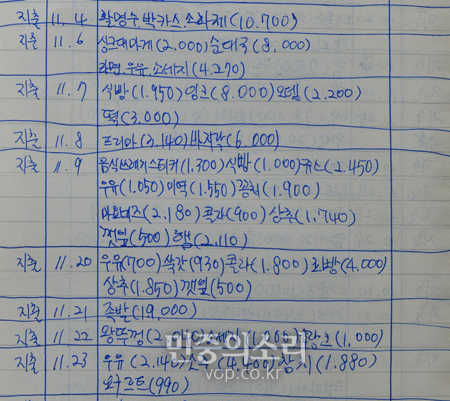 지출 11.4 활명수 박카스.소화제(10.700)
지출 11.6 싱크대마개(2.000)순대국(8.000)
라면.우유.소세지(4.270)
지출 11.7 식빵(1.950) (8.000) (2.200)
떡(3.000)
지출 11.8 프리마(3.140)바지락(6.000)
지출 11.9 음식쓰레기스티커(1.300)식빵(1.000)쥬스(2.450)
우유(1.050)미역(1.550)꽁치(1.900)
마요네즈(2.180)콜라(900)상추(1.740)
깻잎(500)햄(2.110)
지출 11.20 우유(700)쑥갓(930)콜라(1.800) (4.000)
상추(1.850)깻잎(500)
지출 11.21 족발(19.000)
지출 11.22 왕뚜껑 (1.000)
지출 11.23 우유(2.140) (4.400)참치(1.880)
요구르트(990)
민중의소리
vop.co.kr